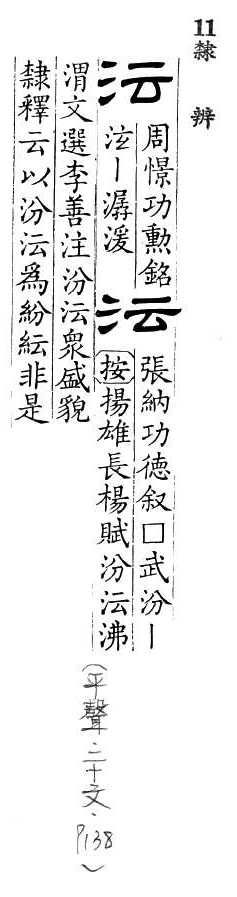 11隸 辨
沄
周憬功勳銘
泫丨潺湲
沄
張納功德叙□武汾丨
按揚雄長楊賦汾沄沸
渭文選李善注汾沄衆盛貌
隸釋云以汾沄爲紛紜非是
(平聲.二十文.P138)